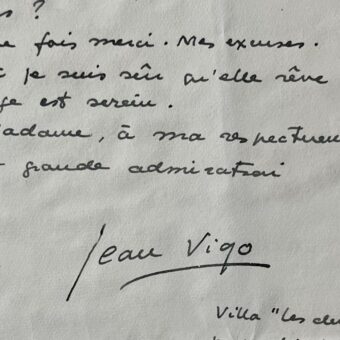 s ?
e fois merci. Mes excuses.
je suis sûr qu'elle rêve
ge est serein.
adame, à ma respectueu
grande admiration
Jean Vigo
Villa "Les